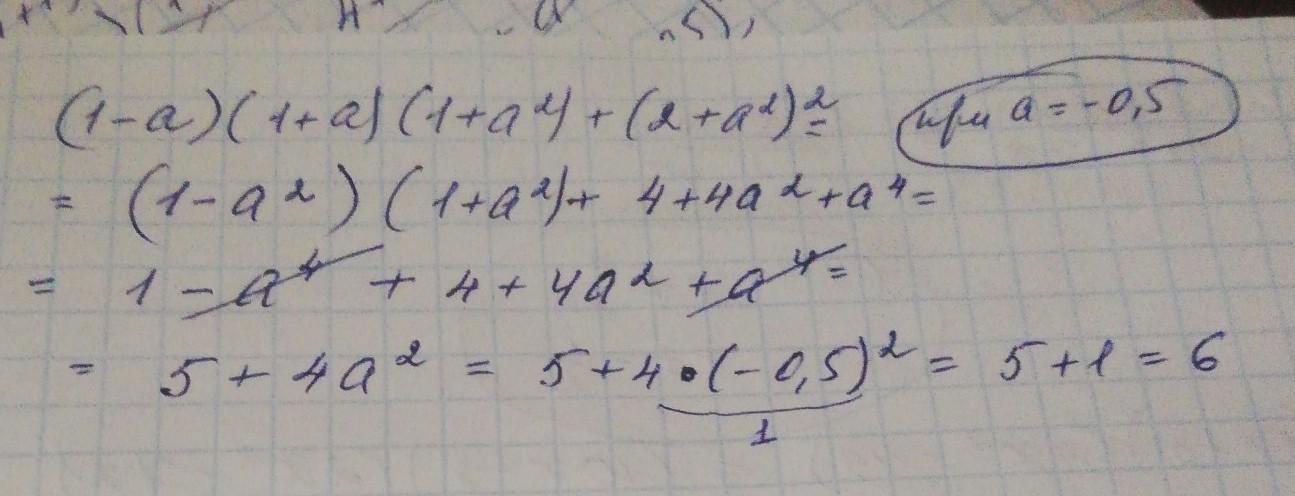 (1-a)(1+a)(1+a²)+(2+a²)²= при a=-0,5
= (1-a²)(1+a²)+ 4+4a²+a⁴=
= 1-a⁴ + 4+4a²+a⁴=
= 5+4a² = 5+4•(-0,5)² = 5+1=6
1